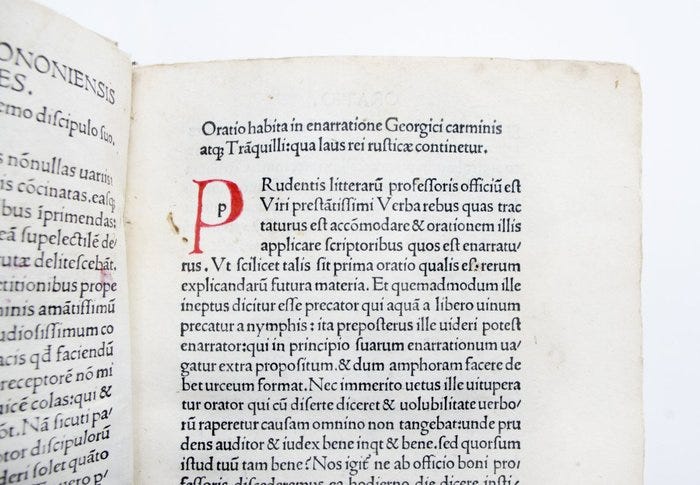 ONONIENSIS
ES.
emo discipulo suo.
s nōnullas uariis
is cōcinatas.easq
ibus īprimendas:
eā supelectilē de/
utæ delitescebāt.
etitionibus prope
minis amātissimū
udiosissimum co
acis qđ faciendū
receptorē nō mi
uicē colas:qui &
ōt. Nā sicuti pa/
ptor discipulorū
deri solet quāto
ORATIO.
Oratio habita in enarratione Georgici carminis
atq; Trāquilli:qua laus rei rusticæ continetur.
P
p
Rudentis litterarū professoris officiū est
Viri prestātissimi Verba rebus quas trac
taturus est accōmodare & orationem illis
applicare scriptoribus quos est enarratu/
rus. Vt scilicet talis sit prima oratio qualis est rerum
explicandarū futura materia. Et quemadmodum ille
ineptus dicitur esse precator qui aquā a libero uinum
precatur a nymphis: ita preposterus ille uideri potest
enarrator:qui in principio suarum enarrationum ua/
gatur extra propositum.& dum amphoram facere de
bet urceum format. Nec immerito uetus ille uitupera
tur orator qui cū diserte diceret & uolubilitate uerbo/
rū raperetur causam omnino non tangebat:unde pru
dens auditor & iudex bene inqt & bene.sed quorsum
istud tuū tam bene? Nos igit̄ ne ab officio boni pro/
fessoris discederemus ea hodierno die dicere insti/